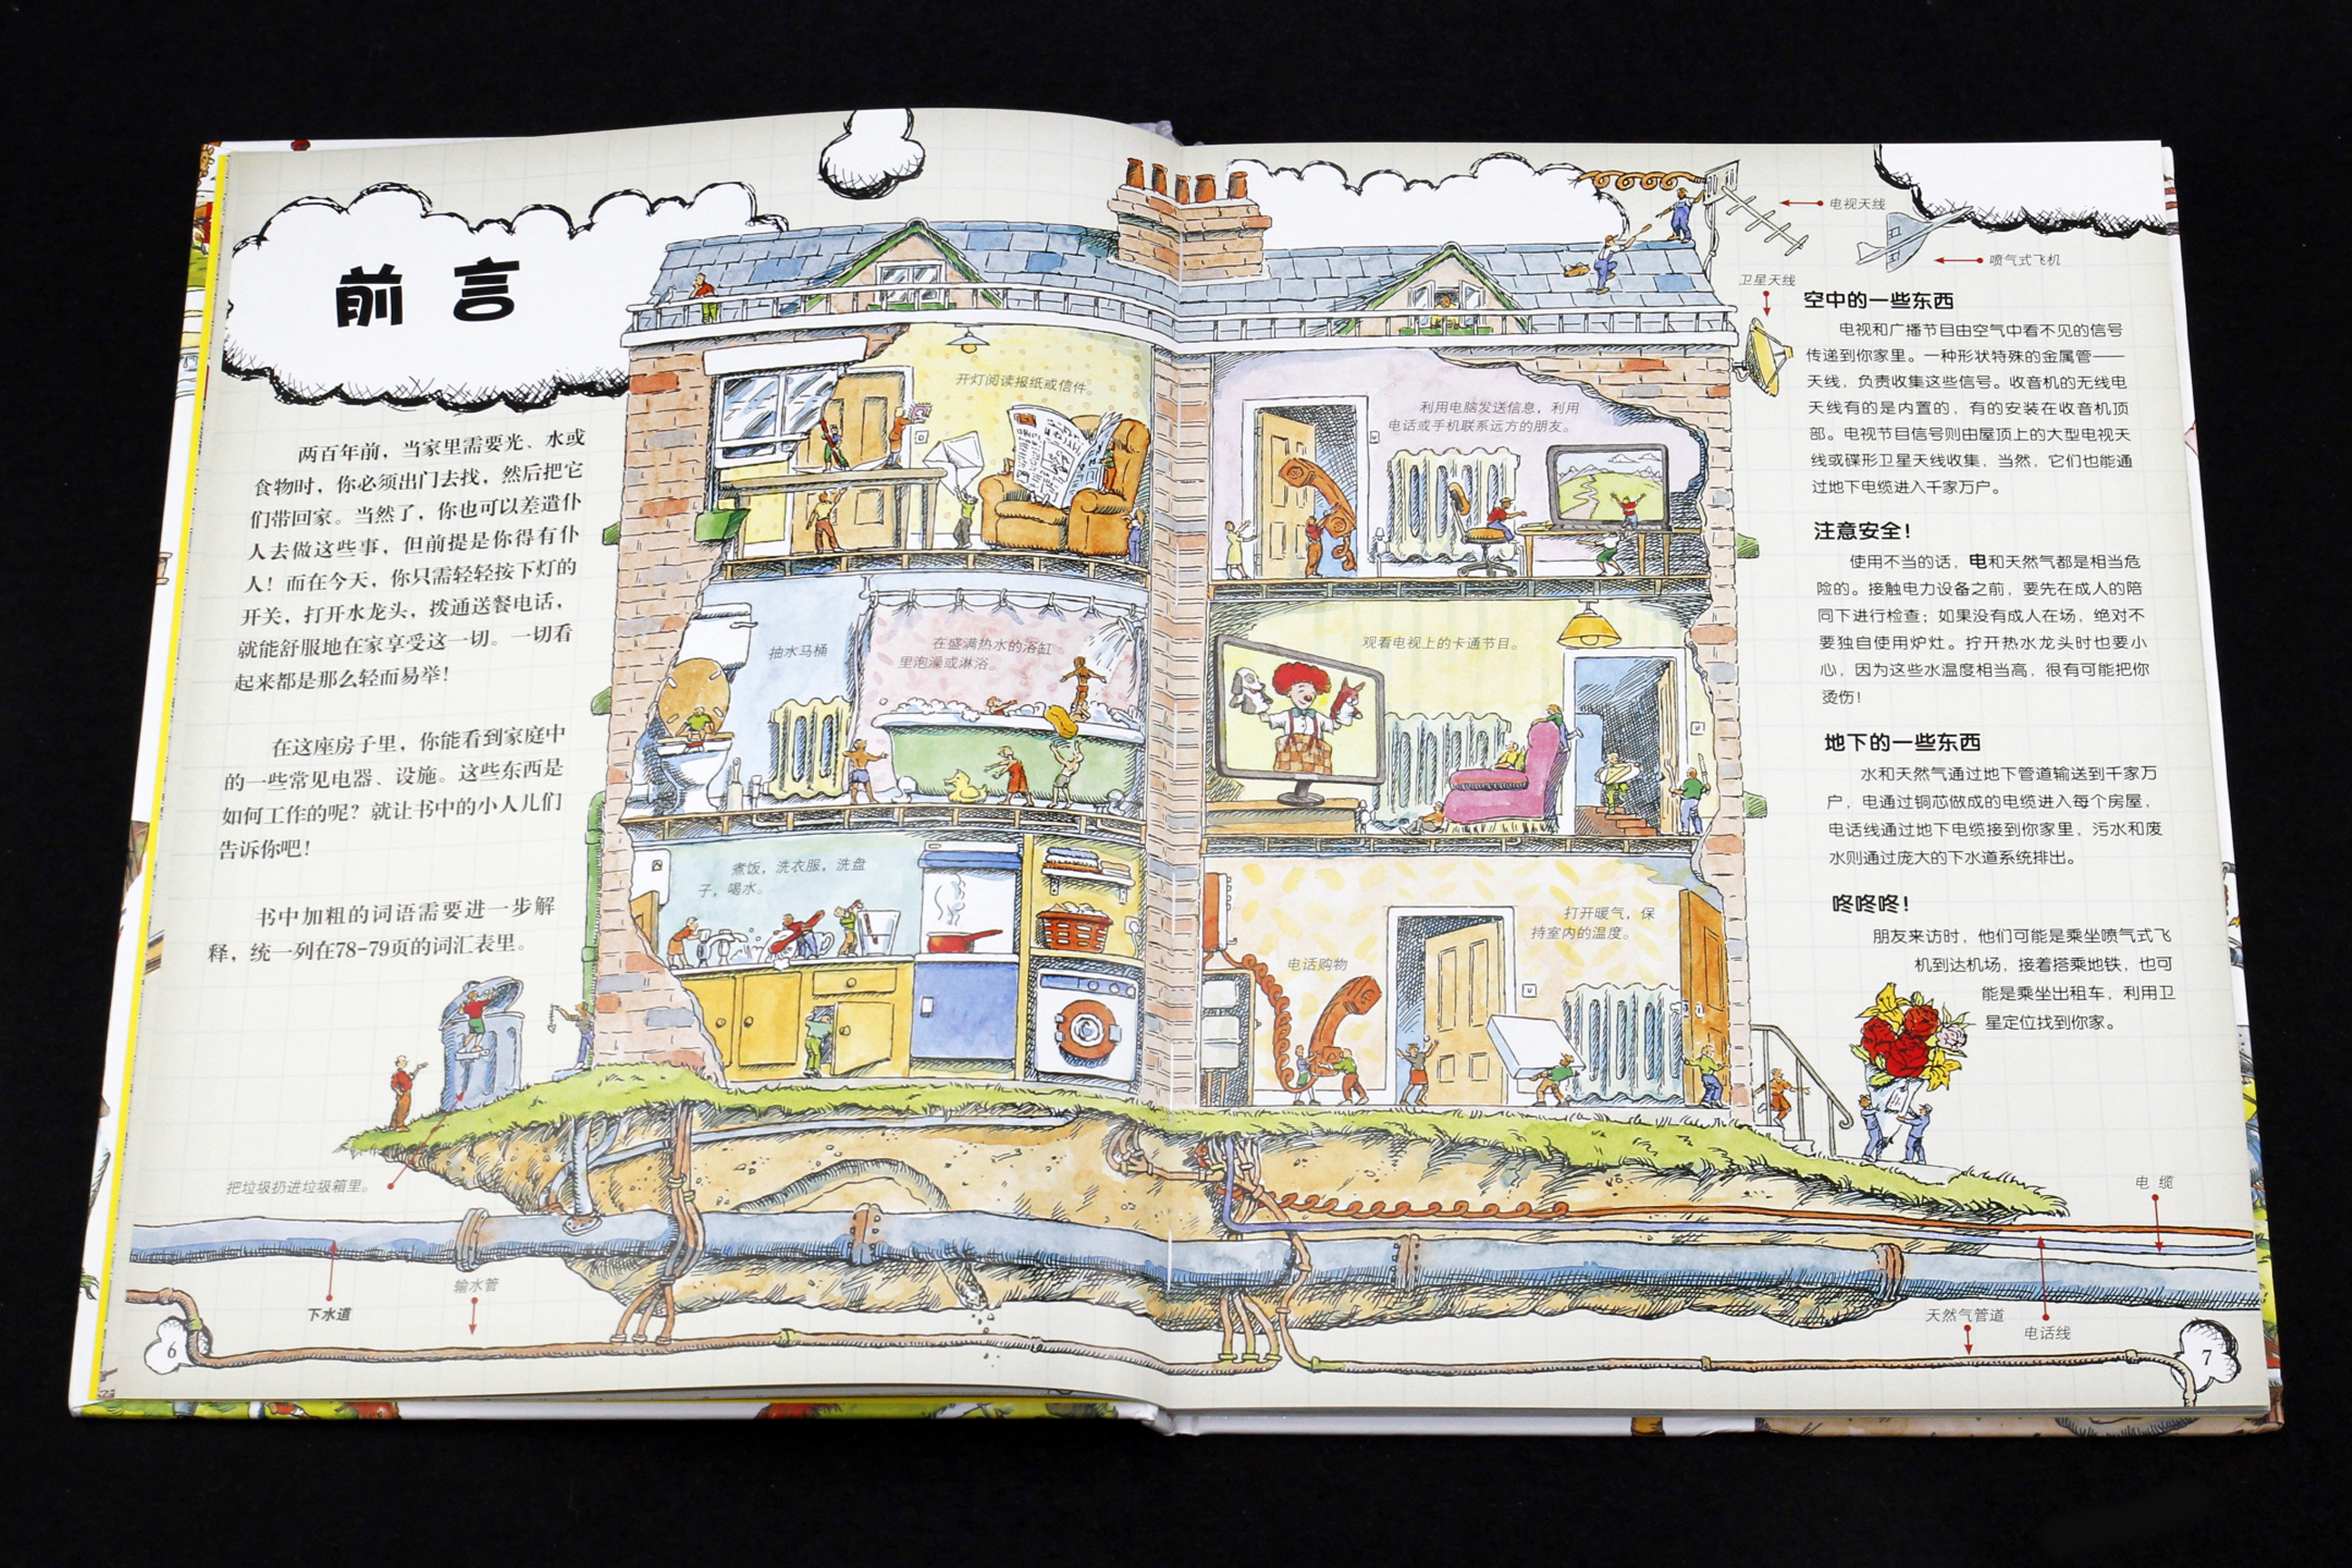 前言
两百年前，当家里需要光、水或
食物时，你必须出门去找，然后把它
们带回家。当然了，你也可以差遣仆
人去做这些事，但前提是你得有仆
人！而在今天，你只需轻轻按下灯的
开关，打开水龙头，拨通送餐电话，
就能舒服地在家享受这一切。一切看
起来都是那么轻而易举！
在这座房子里，你能看到家庭中
的一些常见电器、设施。这些东西是
如何工作的呢？就让书中的小人儿们
告诉你吧！
书中加粗的词语需要进一步解
释，统一列在78-79页的词汇表里。
把垃圾扔进垃圾箱里。
下水道
输水管
6
开灯阅读报纸或信件。
抽水马桶
在盛满热水的浴缸
里泡澡或淋浴。
煮饭，洗衣服，洗盘
子，喝水。
利用电脑发送信息，利用
电话或手机联系远方的朋友。
观看电视上的卡通节目。
打开暖气，保
持室内的温度。
电话购物
电视天线
喷气式飞机
卫星天线
空中的一些东西
电视和广播节目由空气中看不见的信号
传递到你家里。一种形状特殊的金属管——
天线，负责收集这些信号。收音机的无线电
天线有的是内置的，有的安装在收音机顶
部。电视节目信号则由屋顶上的大型电视天
线或碟形卫星天线收集，当然，它们也能通
过地下电缆进入千家万户。
注意安全！
使用不当的话，电和天然气都是相当危
险的。接触电力设备之前，要先在成人的陪
同下进行检查；如果没有成人在场，绝对不
要独自使用炉灶。拧开热水龙头时也要小
心，因为这些水温度相当高，很有可能把你
烫伤！
地下的一些东西
水和天然气通过地下管道输送到千家万
户，电通过铜芯做成的电缆进入每个房屋，
电话线通过地下电缆接到你家里，污水和废
水则通过庞大的下水道系统排出。
咚咚咚！
朋友来访时，他们可能是乘坐喷气式飞
机到达机场，接着搭乘地铁，也可
能是乘坐出租车，利用卫
星定位找到你家。
电缆
天然气管道
电话线
7